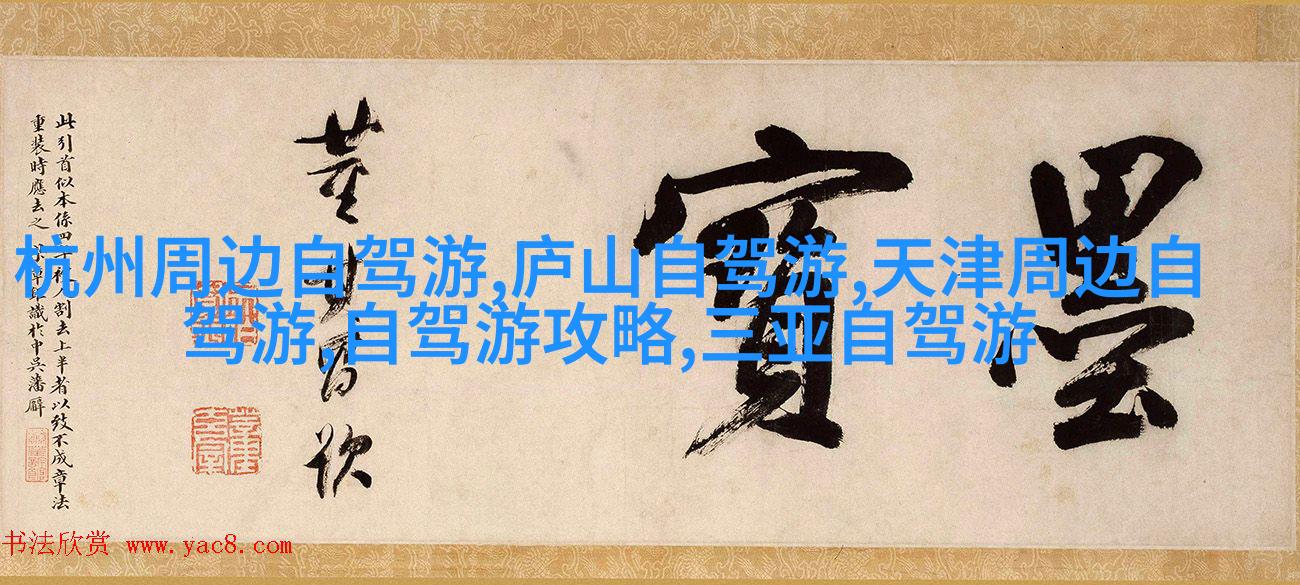 寶
董其昌
此引首似本係四字被人割去上半者以致不成章法
重裝時應去之 識於中吳藩廨
杭州周边自驾游,庐山自驾游,天津周边自
驾游,自驾游攻略,三亚自驾游
书法欣赏 www.yac8.com